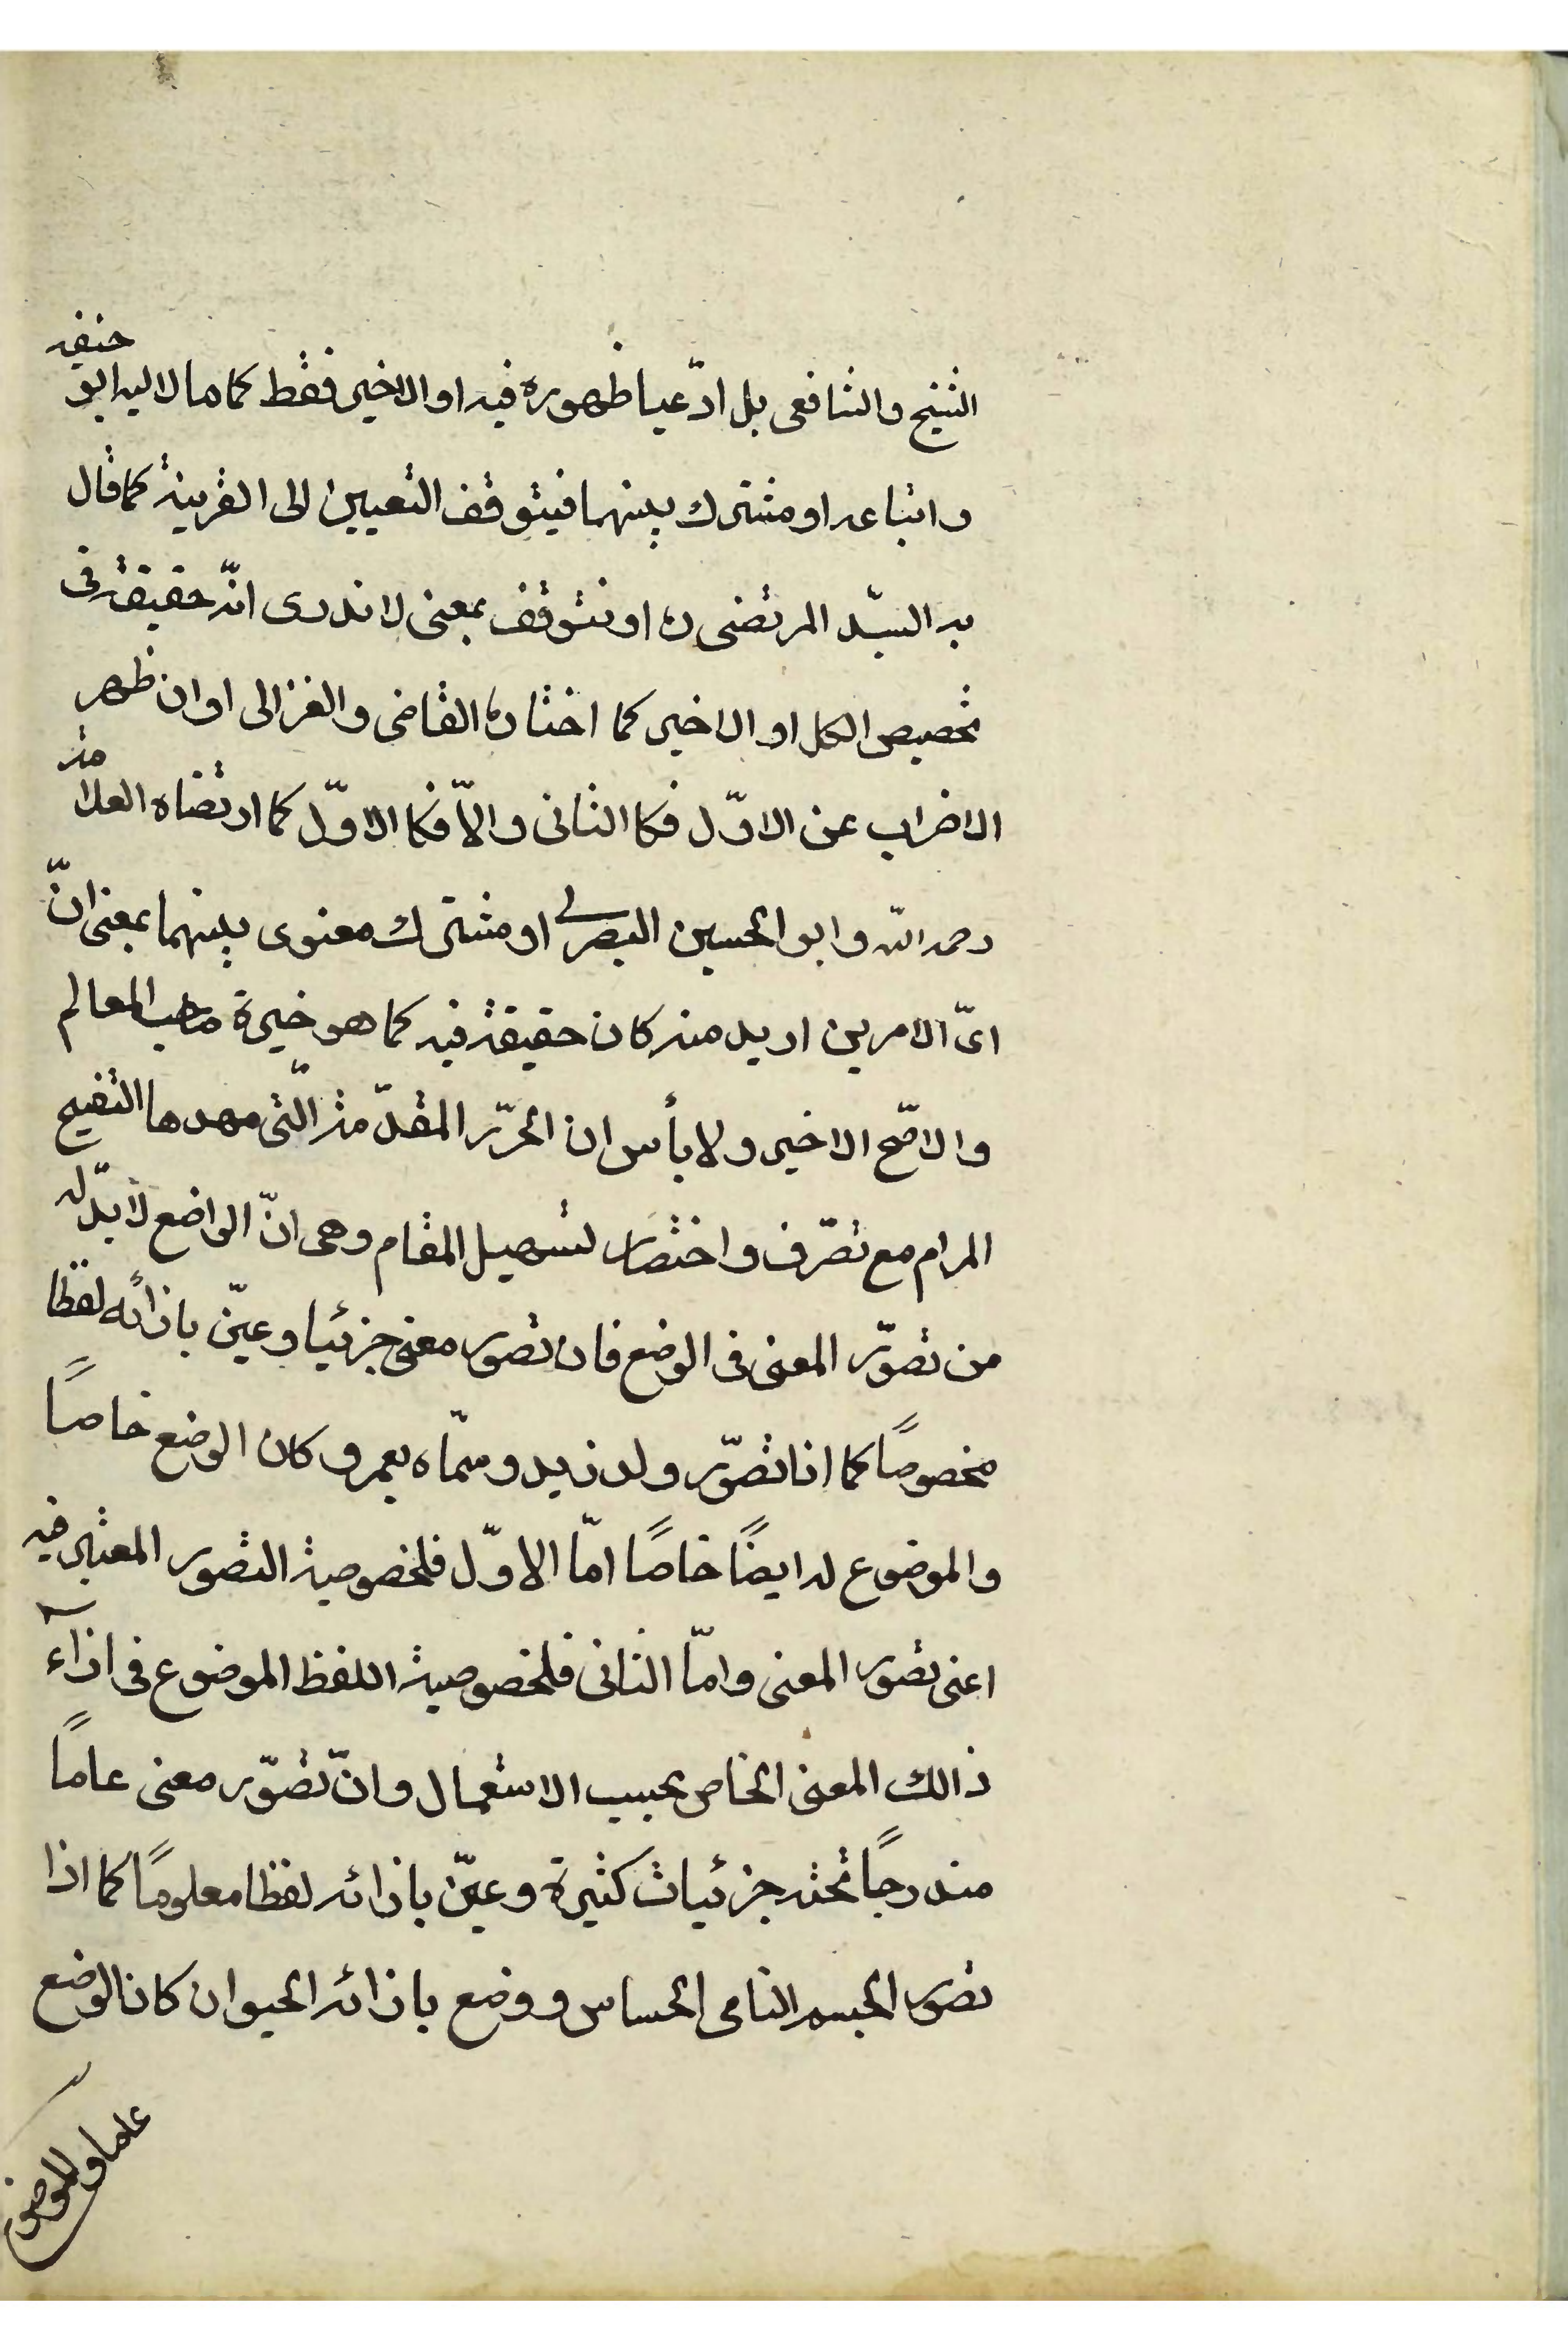 الشيخ والشافعى بل ادّعيا ظهوره فيه او الاخير فقط كما مال اليه ابو حنيفه
واتباعه او مشترك بينهما فيتوقف التعيين الى القرينة كما قال
به السيّد المرتضى ره او نتوقف بمعنى لا ندرى انّه حقيقة فى
تخصيص الكل او الاخير كما اختاره القاضى والغزالى او ان ظهر
الاضراب عن الاوّل فكالثانى والّا فكالاوّل كما ارتضاه العلامة
رحمه الله وابو الحسين البصرى او مشترك معنوى بينهما بمعنى انّ
اىّ الامرين اريد منه كان حقيقة فيه كما هو خيرة صاحب المعالم
والاصّح الاخير ولا بأس ان احرّر المقدّمة الّتى مهدها لتنقيح
المرام مع تصرّف واختصار لتسهيل المقام وهى انّ الواضع لا بدّ له
من تصوّر المعنى فى الوضع فان تصور معنى جزئيا وعيّن بازائه لفظا
مخصوصًا كما اذا تصوّر ولد زيد وسمّاه بعمرو كان الوضع خاصًا
والموضوع له ايضًا خاصًا امّا الاوّل فلخصوصية التصور المعتبر فيه
اعنى تصور المعنى وامّا الثانى فلخصوصية اللفظ الموضوع فى ازآء
ذالك المعنى الخاص بحسب الاستعمال وانّ تصوّر معنى عامًا
مندرجًا تحته جزئيات كثيرة وعيّن بازائه لفظا معلومًا كما اذا
تصور الجسم النامى الحساس ووضع بازائه الحيوان كان الوضع
عاما والموضوع